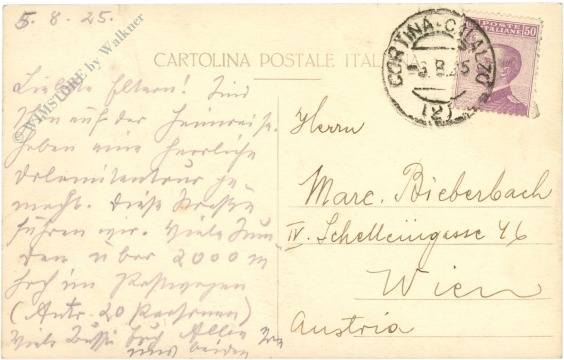 5. 8. 25.
© WIMSTORE by Walkner
CARTOLINA POSTALE ITALIANA
POSTE ITALIANE 50
CORTINA-CALALZO
(2)
Liebste Eltern! Sind
schon auf der Heimreise.
haben eine herrliche
Dolomitentour ge-
macht. Diese Straße
fuhren wir. Viele Stun
den über 2000 m
hoch im Postwagen
(Auto. 20 Personen)
Viele Bussi Euch Allen
von uns beiden
Herrn
Marc. Bieberbach
IV. Schelleingasse 46
Wien
Austria